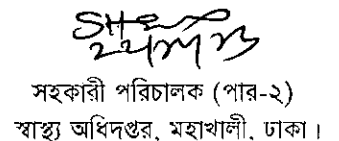 সহকারী পরিচালক (পার-২)
স্বাস্থ্য অধিদপ্তর, মহাখালী, ঢাকা।